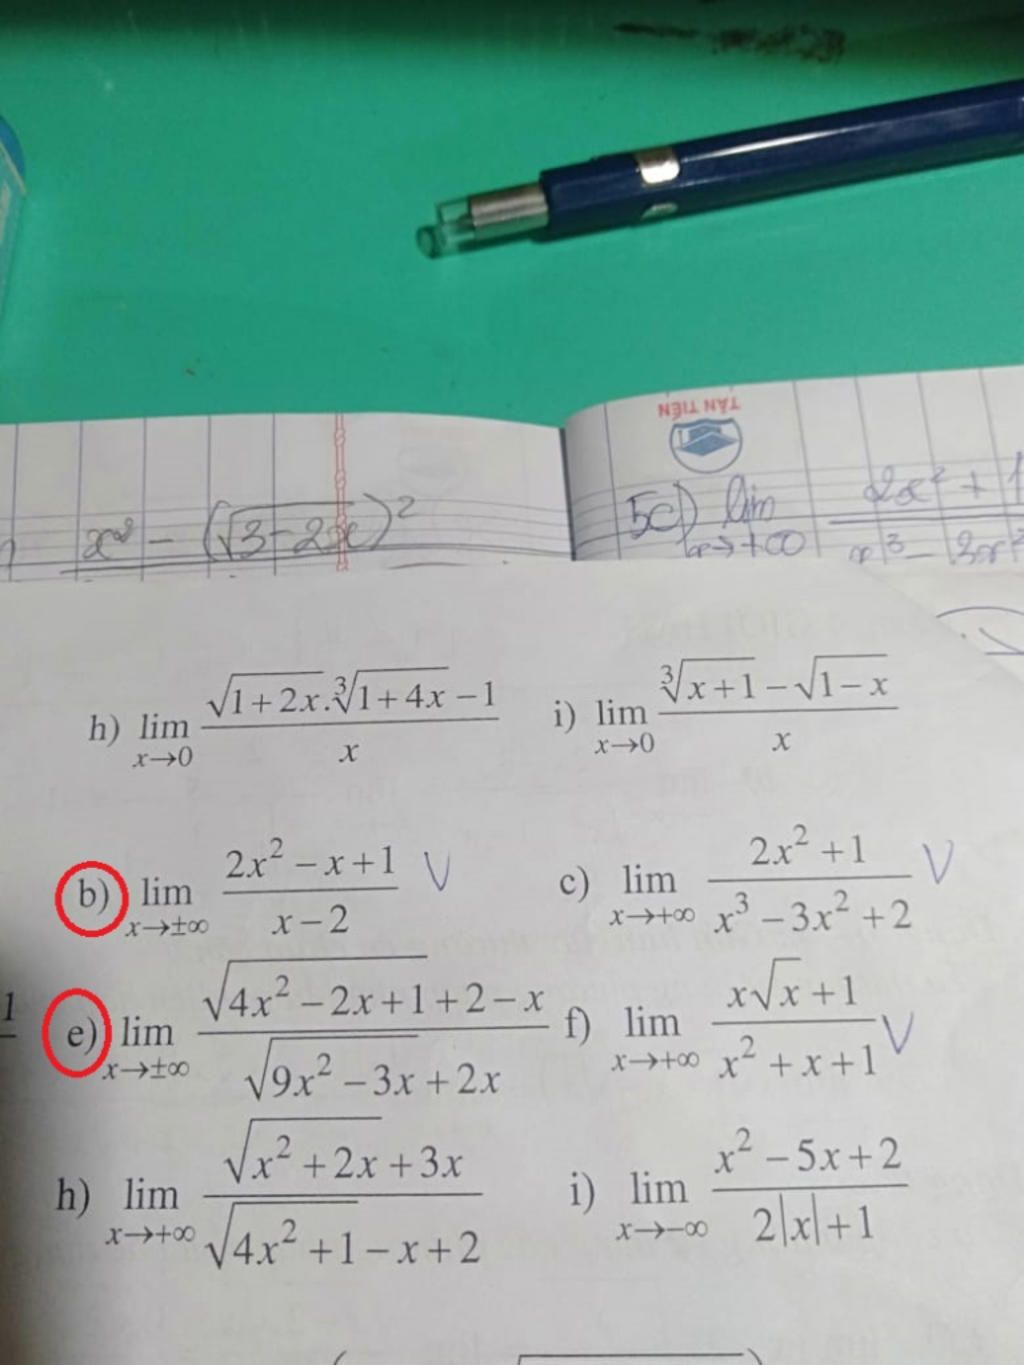 TÂN TIẾN
x² - (√3-2x)²
5c) lim 2x² + 1
x→+∞ x³ - 3x²
h) lim x→0 (√1+2x.∛1+4x − 1)/x i) lim x→0 (∛x+1 − √1−x)/x
b) lim x→±∞ (2x² − x + 1)/(x − 2) V c) lim x→+∞ (2x² + 1)/(x³ − 3x² + 2) V
1 e) lim x→±∞ (√4x² − 2x + 1 + 2 − x)/(√9x² − 3x + 2x) f) lim x→+∞ (x√x + 1)/(x² + x + 1) V
h) lim x→+∞ (√x² + 2x + 3x)/(√4x² + 1 − x + 2) i) lim x→−∞ (x² − 5x + 2)/(2|x| + 1)